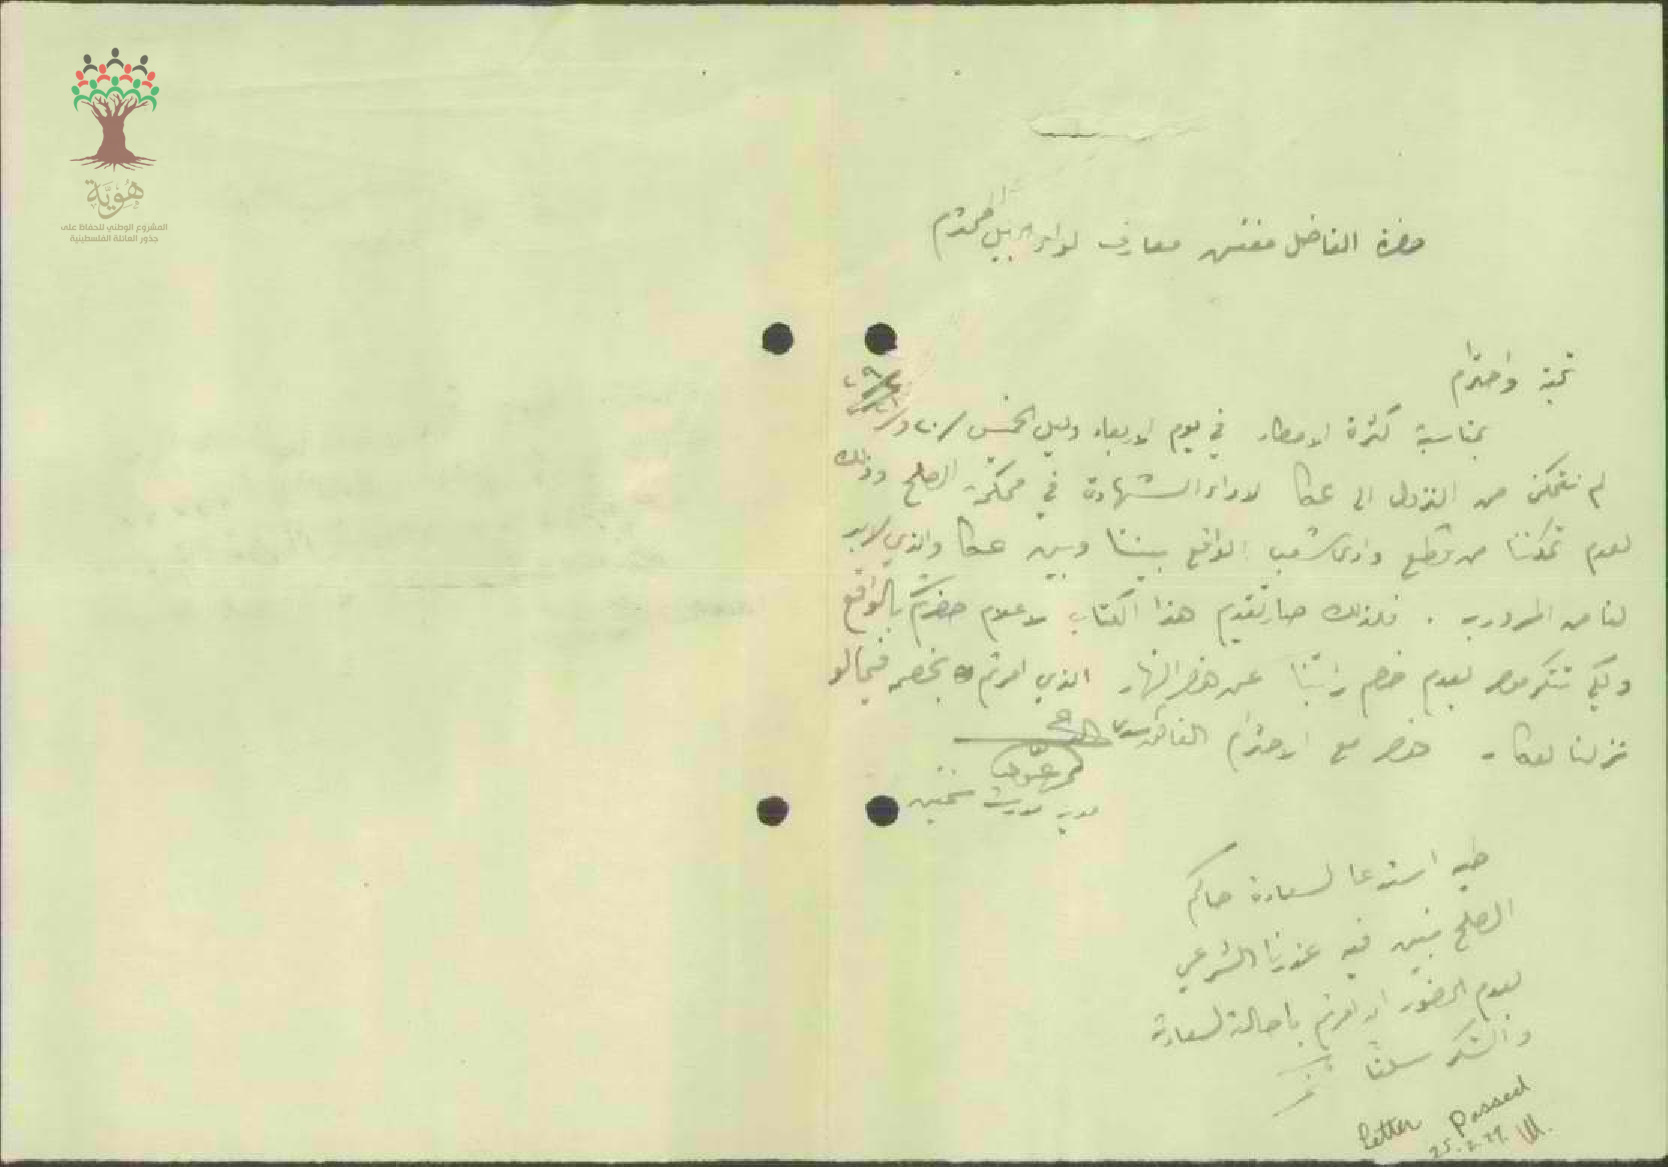 هُوِيَّة
المشروع الوطني للحفاظ على
جذور العائلة الفلسطينية
حضرة الفاضل مفتش معارف لواء الجليل المحترم
تحية واحترام
بمناسبة كثرة الامطار في يوم الاربعاء وليل الخميس
لم نتمكن من النزول الى عكا لاداء الشهادة في محكمة الصلح وذلك
لعدم تمكننا من قطع وادي شعب الواقع بيننا وبين عكا والذي لابد
لنا من المرور به . فلذلك صار تقديم هذا الكتاب لاعلام حضرتكم بالواقع
ولكي تتكرموا بعدم خصم راتبنا عن هذا النهار الذي امرتم بخصمه فيما لو
نزلنا لعكا - هذا مع الاحترام
مدير مدرسة سخنين
طيه استدعا لسعادة حاكم
الصلح نبين فيه عذرنا الشرعي
لعدم الحضور ان امرتم باحالته لسعادته
والشكر سلفا
Letter Passed